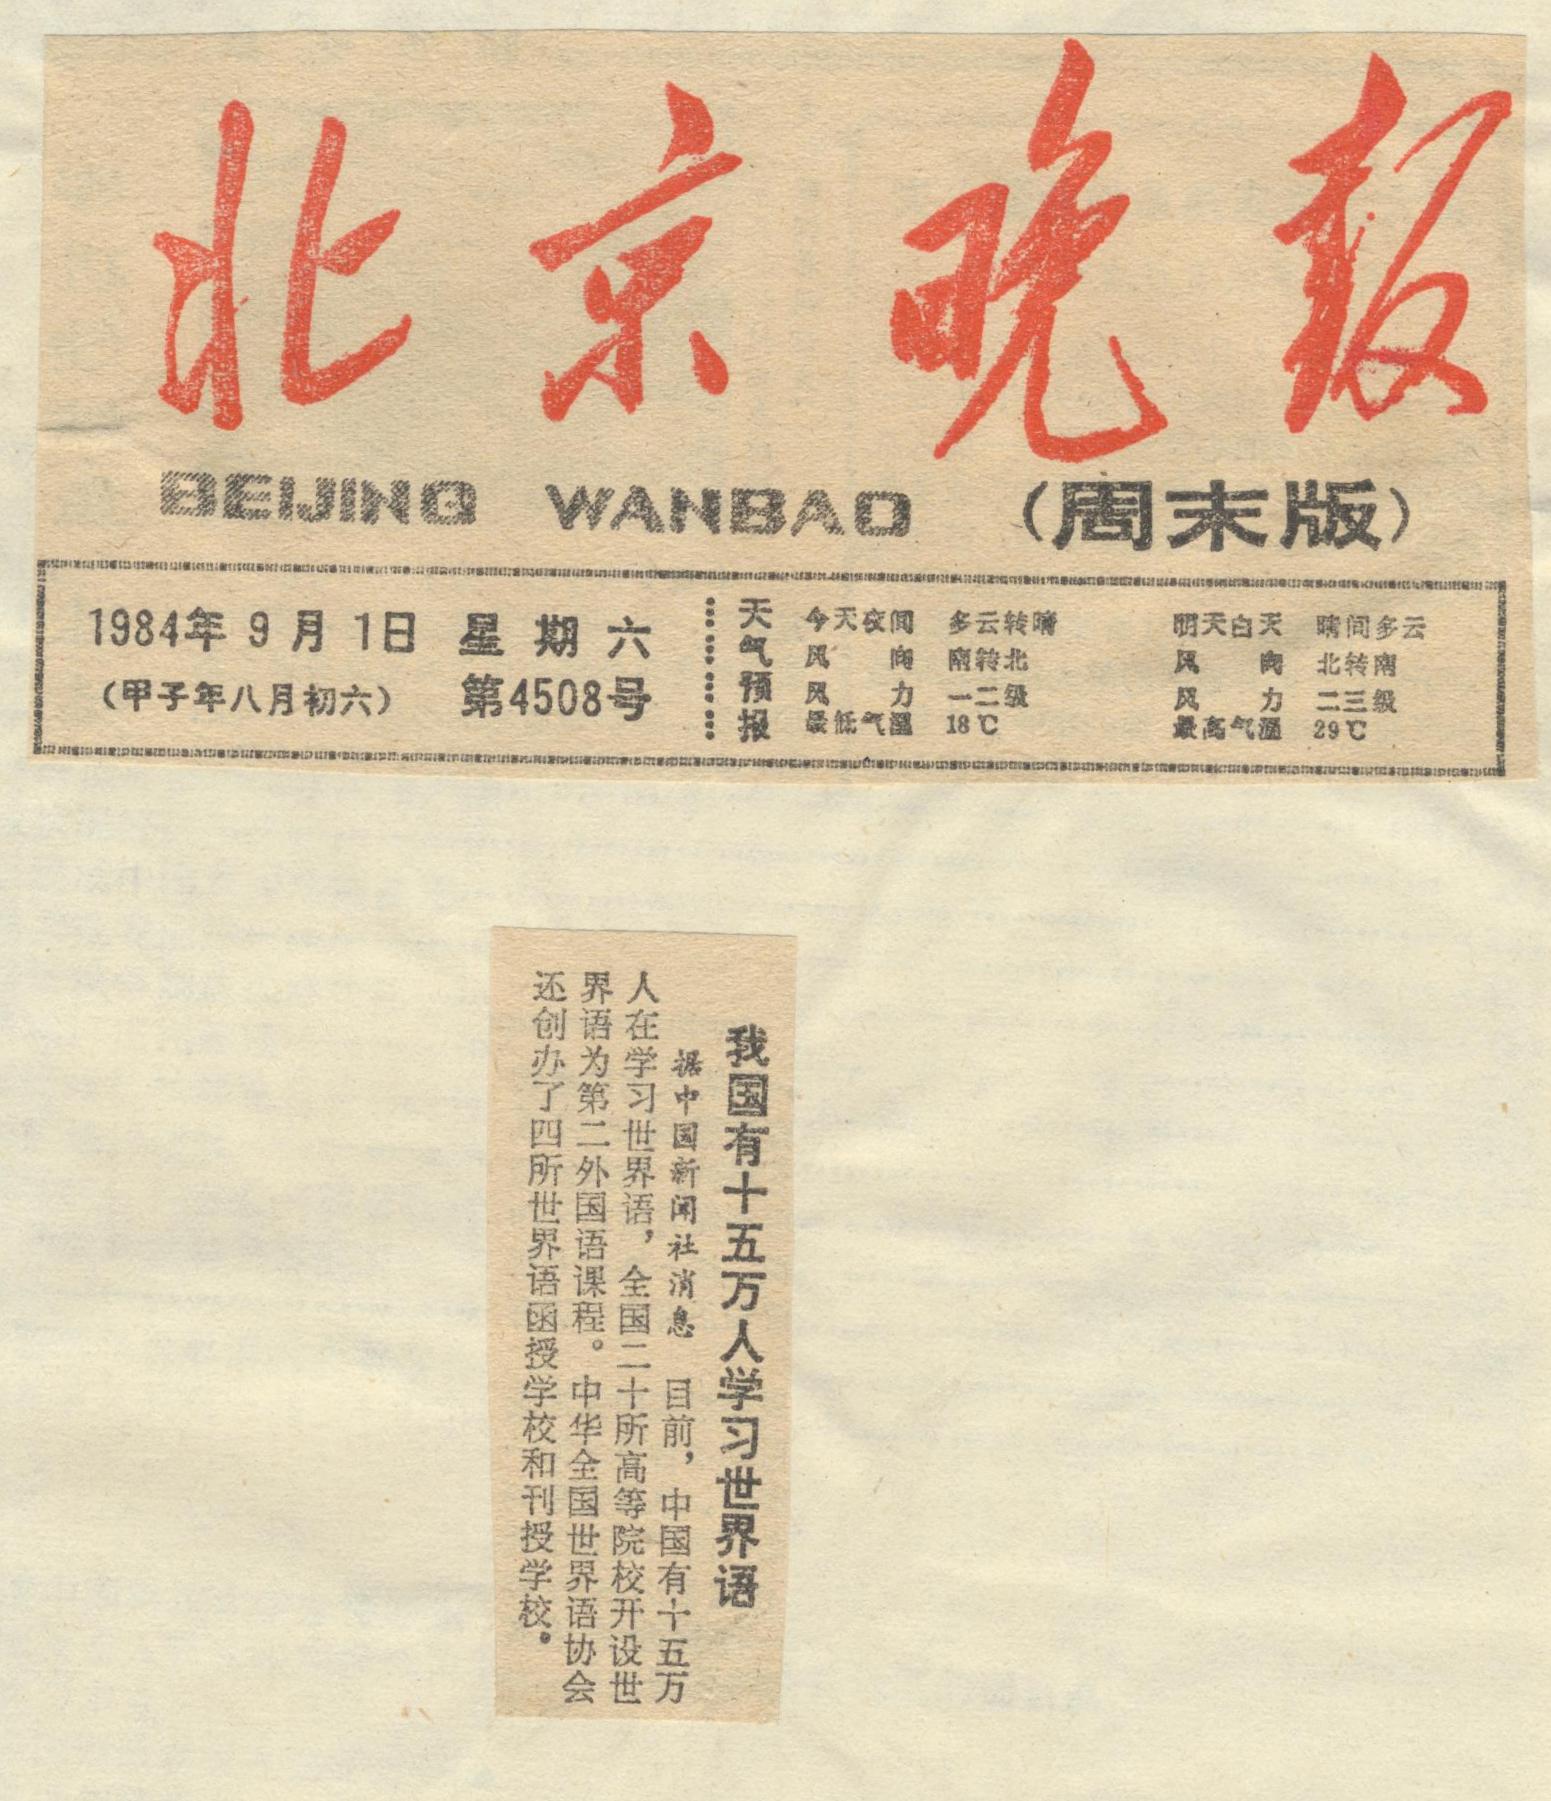 北京晚报
BEIJING WANBAO （周末版）
1984年9月1日 星期六
（甲子年八月初六） 第4508号
天气预报
今天夜间 多云转晴
风向 南转北
风力 一二级
最低气温 18℃
明天白天 晴间多云
风向 北转南
风力 二三级
最高气温 29℃
我国有十五万人学习世界语
据中国新闻社消息 目前，中国有十五万
人在学习世界语，全国二十所高等院校开设世
界语为第二外国语课程。中华全国世界语协会
还创办了四所世界语函授学校和刊授学校。